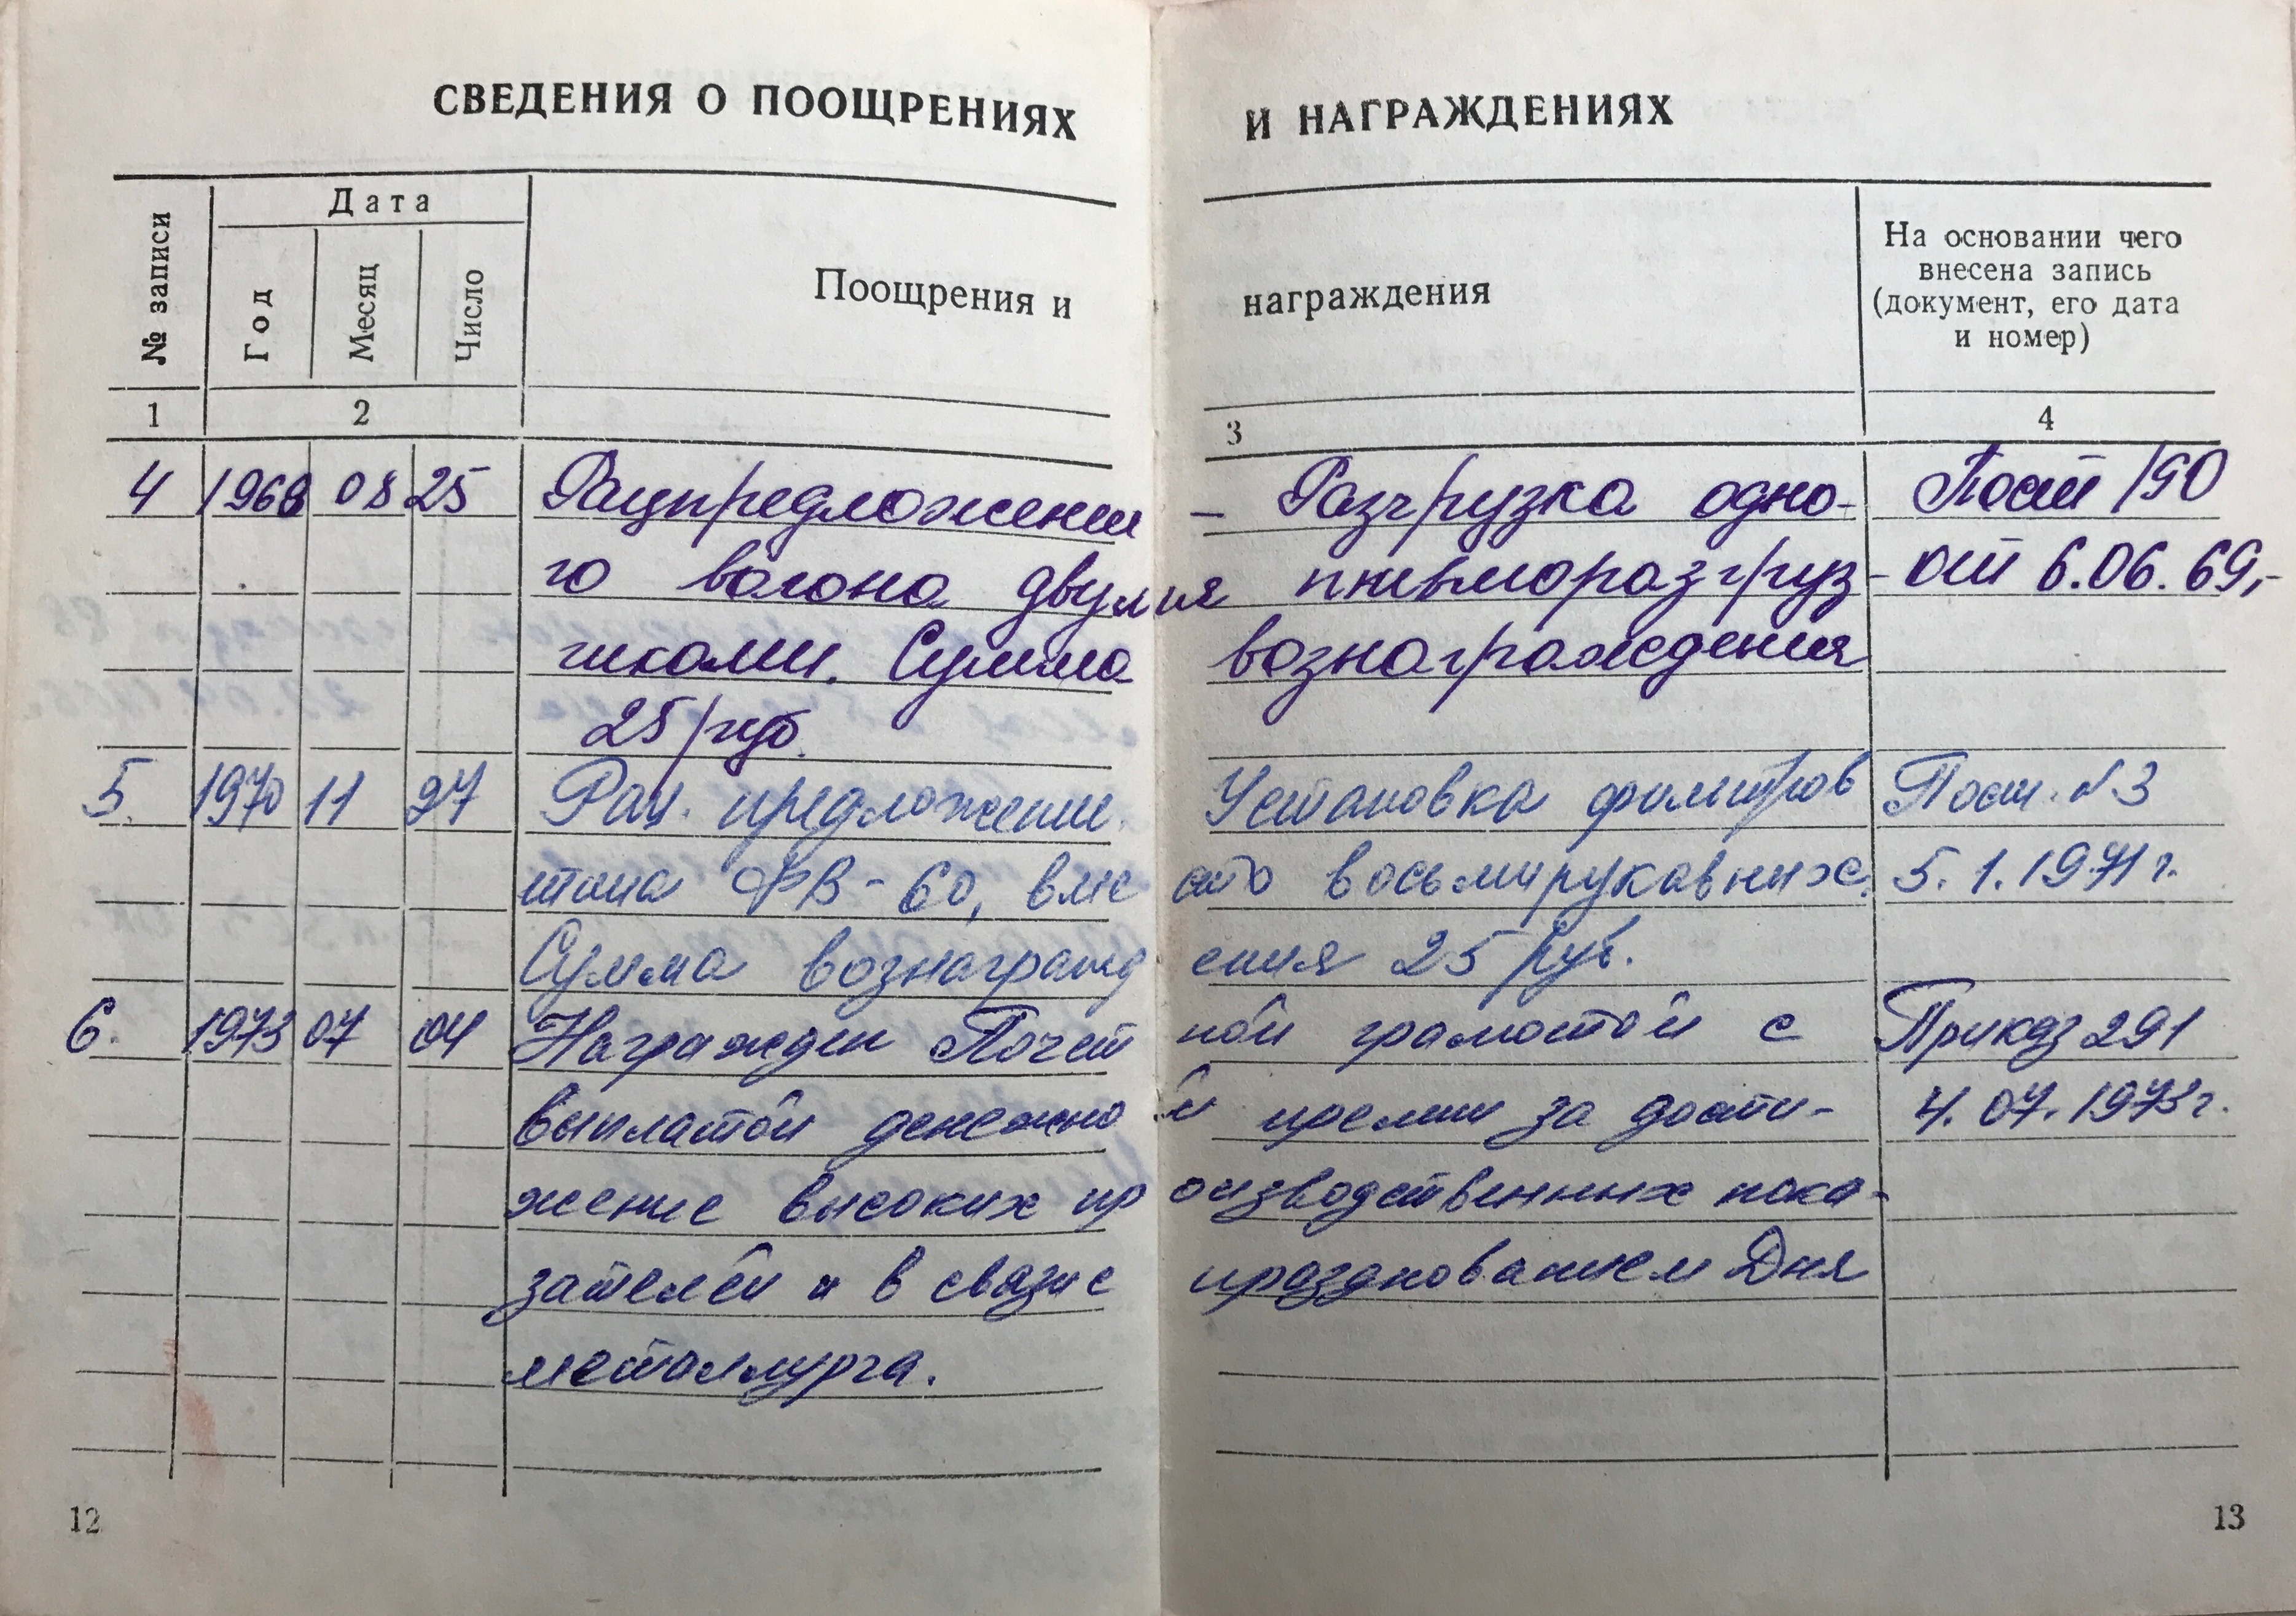 СВЕДЕНИЯ О ПООЩРЕНИЯХ И НАГРАЖДЕНИЯХ
№ записи
Дата
Год
Месяц
Число
Поощрения и награждения
На основании чего
внесена запись
(документ, его дата
и номер)
1 2 3 4
4 1968 08 25 Рацпредложение - Разгрузка одно- Пост 190
го вагона двумя пневморазгруз- от 6.06.69,-
чиками. Сумма вознаграждения
25 руб.
5. 1970 11 27 Рац. предложение. Установка фильтров Пост. №3
типа ФВ-60, вместо восьмирукавных. 5.1.1971г.
Сумма вознаграждения 25 руб.
6. 1973 07 04 Награжден Почетной грамотой с Приказ 291
выплатой денежной премии за дости- 4.07.1973г.
жение высоких производственных пока-
зателей и в связи с празднованием Дня
металлурга.
12 13